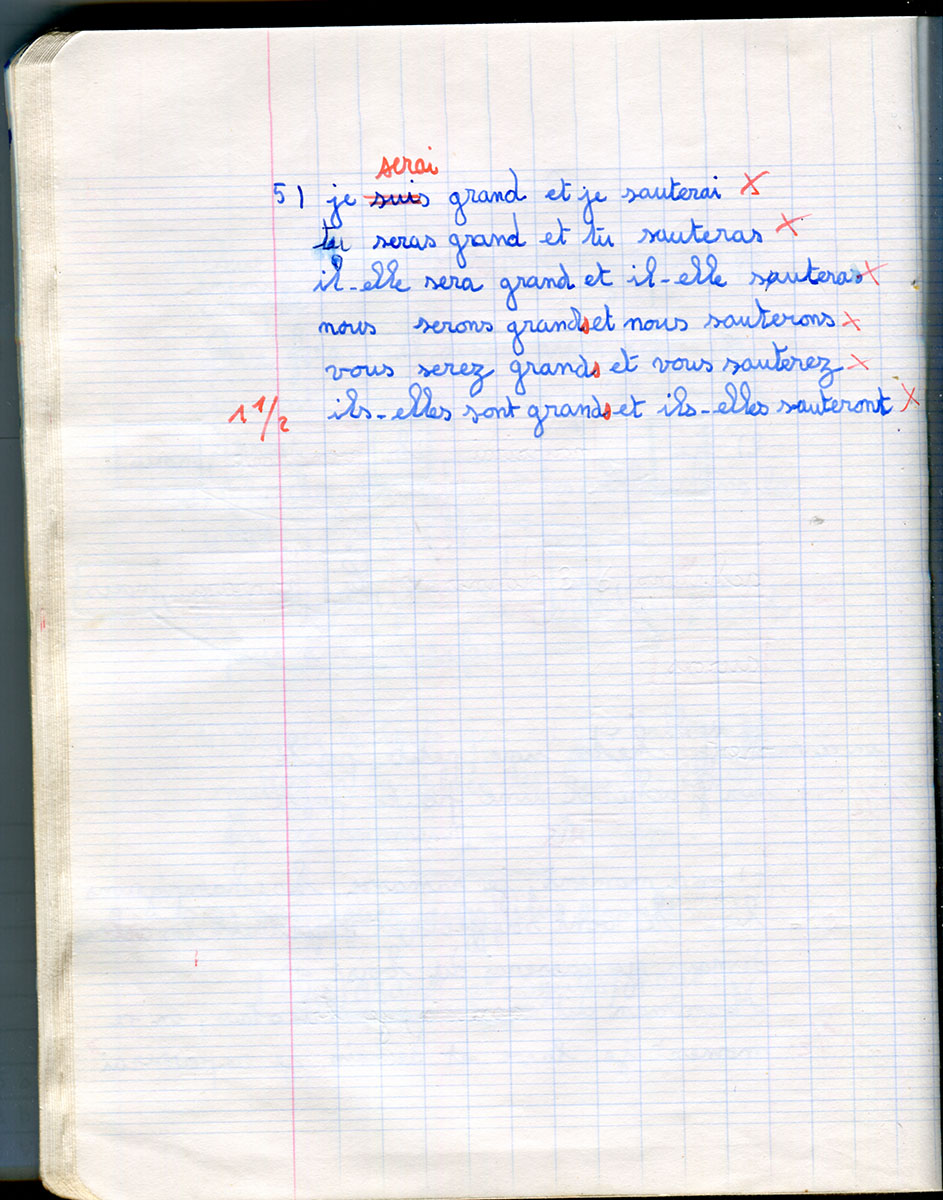 serai
5) je suis grand et je sauterai X
tu seras grand et tu sauteras X
il-elle sera grand et il-elle sauteras X
nous serons grands et nous sauterons X
vous serez grands et vous sauterez X
1 1/2 ils-elles sont grands et ils-elles sauteront X